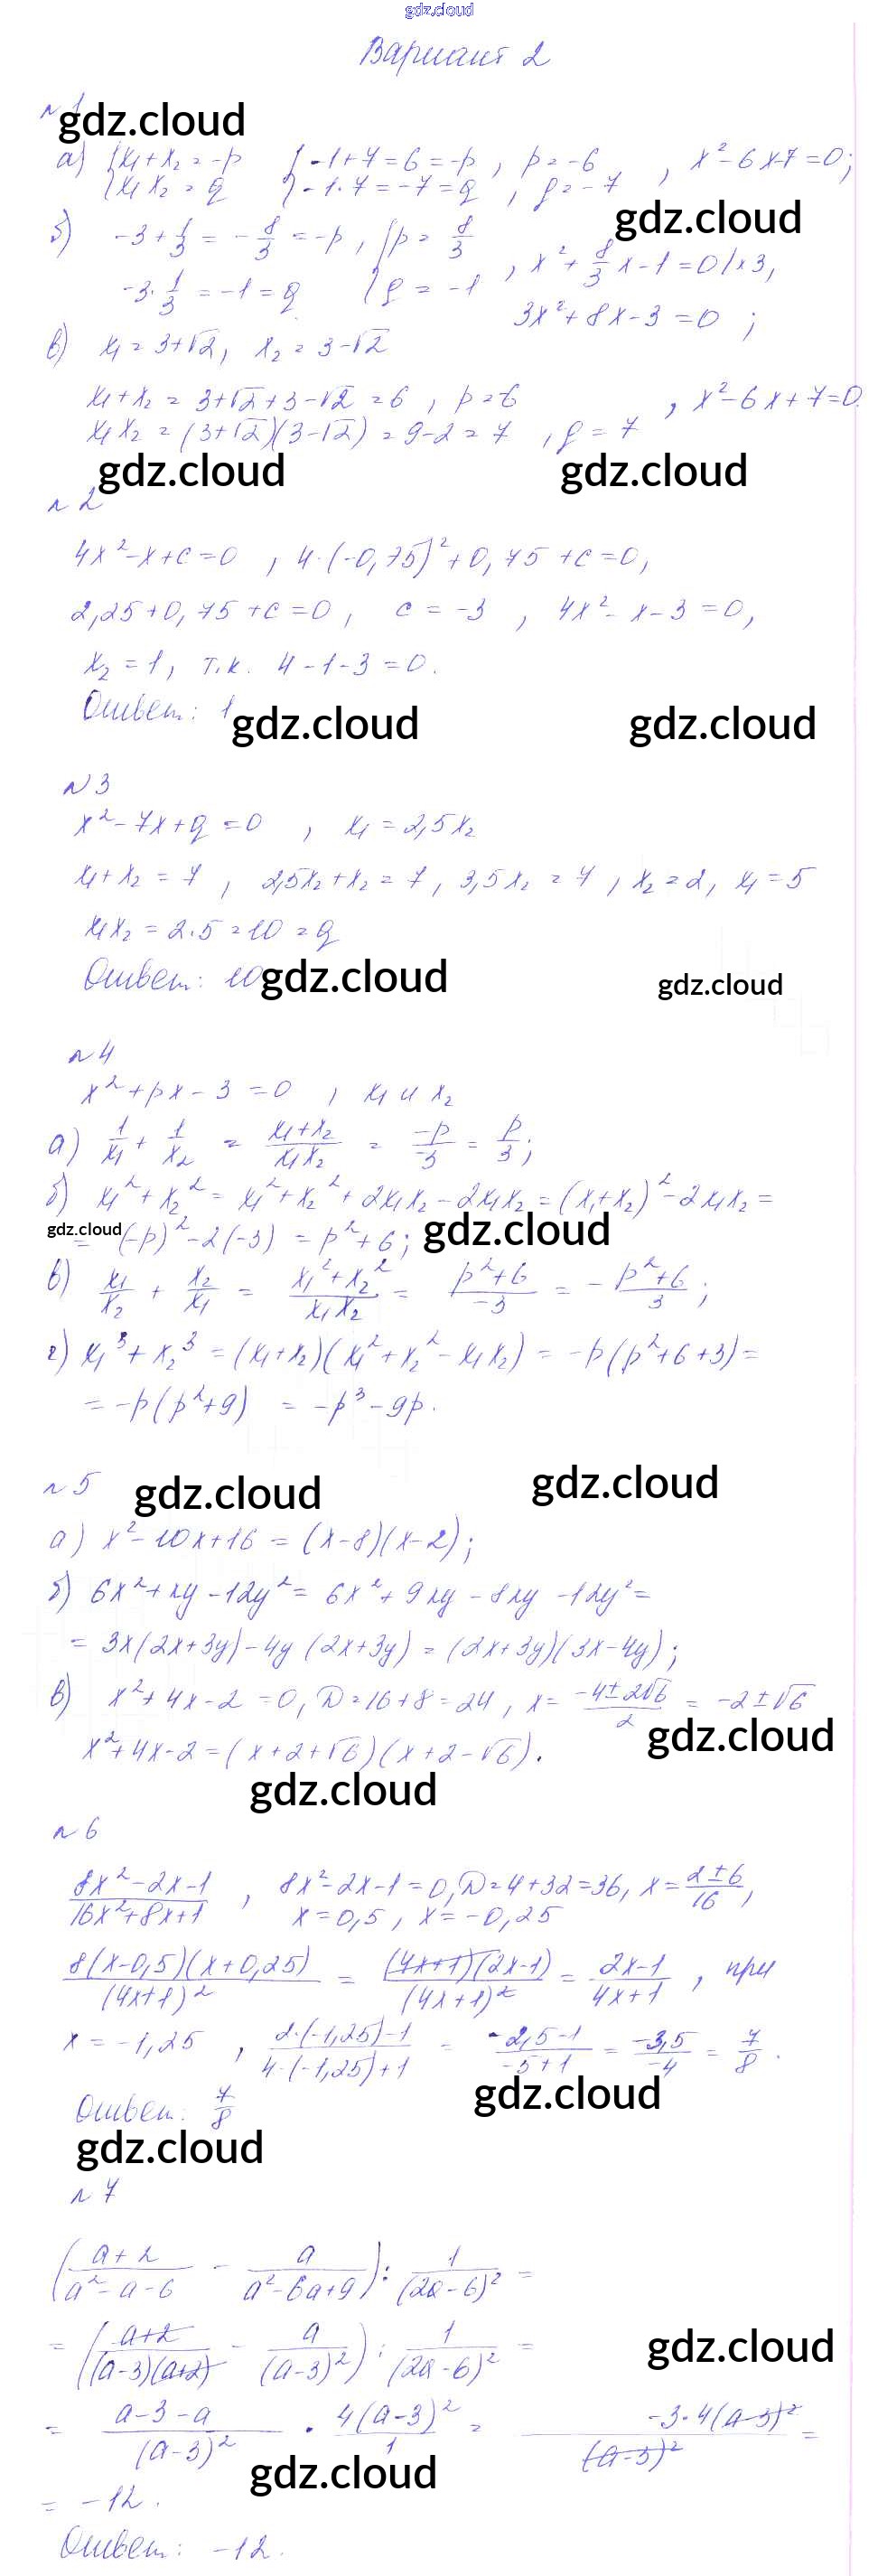 gdz.cloud
Вариант 2
№1
gdz.cloud
а) {x₁+x₂=-p {-1+7=6=-p, p=-6, x²-6x-7=0;
{x₁x₂=q {-1·7=-7=q, q=-7
gdz.cloud
б) -3+1/3=-8/3=-p, {p=8/3, x²+8/3x-1=0/×3,
-3·1/3=-1=q {q=-1
3x²+8x-3=0;
в) x₁=3+√2, x₂=3-√2
x₁+x₂=3+√2+3-√2=6, p=6, x²-6x+7=0
x₁x₂=(3+√2)(3-√2)=9-2=7, q=7
gdz.cloud gdz.cloud
№2
4x²-x+c=0, 4·(-0,75)²+0,75+c=0,
2,25+0,75+c=0, c=-3, 4x²-x-3=0,
x₂=1, т.к. 4-1-3=0.
Ответ: 1
gdz.cloud gdz.cloud
№3
x²-7x+q=0, x₁=2,5x₂
x₁+x₂=7, 2,5x₂+x₂=7, 3,5x₂=7, x₂=2, x₁=5
x₁x₂=2·5=10=q
Ответ: 10
gdz.cloud gdz.cloud
№4
x²+px-3=0, x₁ и x₂
а) 1/x₁+1/x₂=(x₁+x₂)/(x₁x₂)=-p/-3=p/3;
б) x₁²+x₂²=x₁²+x₂²+2x₁x₂-2x₁x₂=(x₁+x₂)²-2x₁x₂=
gdz.cloud gdz.cloud
=(-p)²-2(-3)=p²+6;
в) x₁/x₂+x₂/x₁=(x₁²+x₂²)/(x₁x₂)=(p²+6)/-3=-(p²+6)/3;
г) x₁³+x₂³=(x₁+x₂)(x₁²+x₂²-x₁x₂)=-p(p²+6+3)=
=-p(p²+9)=-p³-9p.
№5
gdz.cloud gdz.cloud
а) x²-10x+16=(x-8)(x-2);
б) 6x²+xy-12y²=6x²+9xy-8xy-12y²=
=3x(2x+3y)-4y(2x+3y)=(2x+3y)(3x-4y);
в) x²+4x-2=0, D=16+8=24, x=(-4±2√6)/2=-2±√6
gdz.cloud
x²+4x-2=(x+2+√6)(x+2-√6).
gdz.cloud
№6
(8x²-2x-1)/(16x²+8x+1), 8x²-2x-1=0, D=4+32=36, x=(2±6)/16,
x=0,5, x=-0,25
8(x-0,5)(x+0,25)/(4x+1)²=(4x+1)(2x-1)/(4x+1)²=(2x-1)/(4x+1), при
x=-1,25, (2·(-1,25)-1)/(4·(-1,25)+1)=(-2,5-1)/(-5+1)=-3,5/-4=7/8.
gdz.cloud
Ответ: 7/8
gdz.cloud
№7
((a+2)/(a²-a-6)-a/(a²-6a+9)):1/(2a-6)²=
=((a+2)/((a-3)(a+2))-a/(a-3)²):1/(2a-6)²=
gdz.cloud
=(a-3-a)/(a-3)²·4(a-3)²/1=-3·4(a-3)²/(a-3)²=
gdz.cloud
=-12.
Ответ: -12.